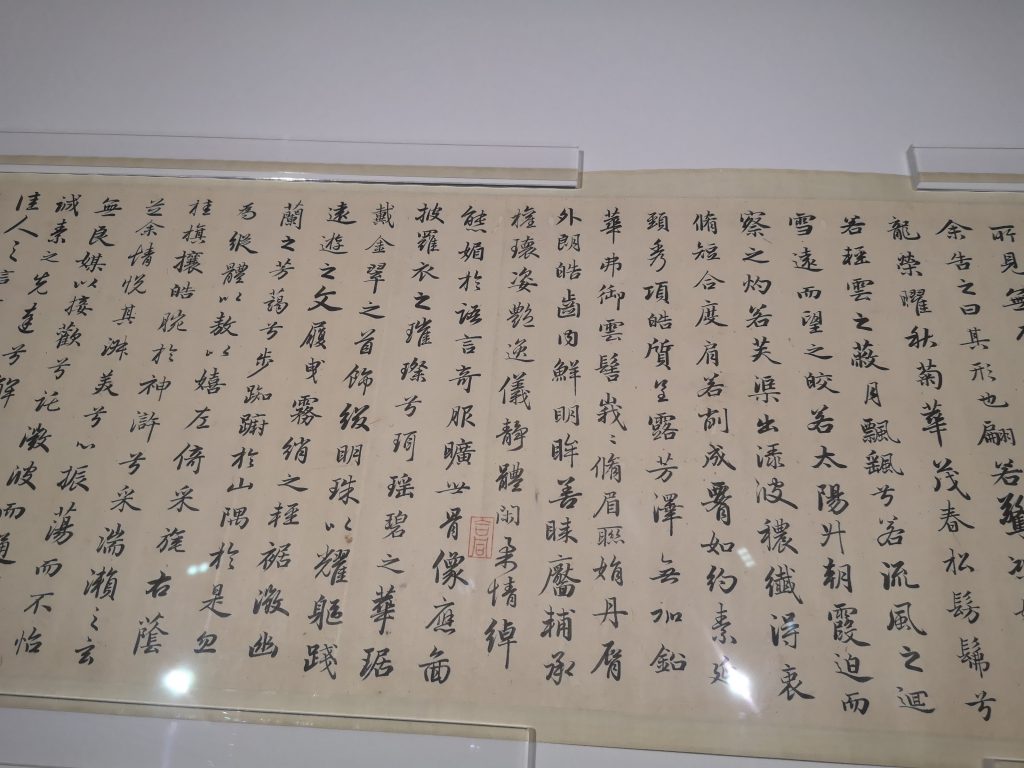 所見無
余告之曰其形也翩若驚
龍榮曜秋菊華茂春松髣髴兮
若輕雲之蔽月飄颻兮若流風之迴
雪遠而望之皎若太陽升朝霞迫而
察之灼若芙渠出淥波穠纖得衷
脩短合度肩若削成腰如約素延
頸秀項皓質呈露芳澤無加鉛
華弗御雲髻峩〻脩眉聯娟丹脣
外朗皓齒內鮮明眸善睞靨輔承
權瓌姿豔逸儀靜體閑柔情綽
態媚於語言奇服曠世骨像應圖
披羅衣之璀璨兮珥瑤碧之華琚
戴金翠之首飾綴明珠以耀軀踐
遠遊之文履曳霧綃之輕裾微幽
蘭之芳藹兮步踟躕於山隅於是忽
焉縱體以敖以嬉左倚采旄右蔭
桂旗攘皓腕於神滸兮采湍瀨之玄
芝余情悅其淑美兮心振蕩而不怡
無良媒以接歡兮託微波而通
誠素之先達兮解
佳人之信